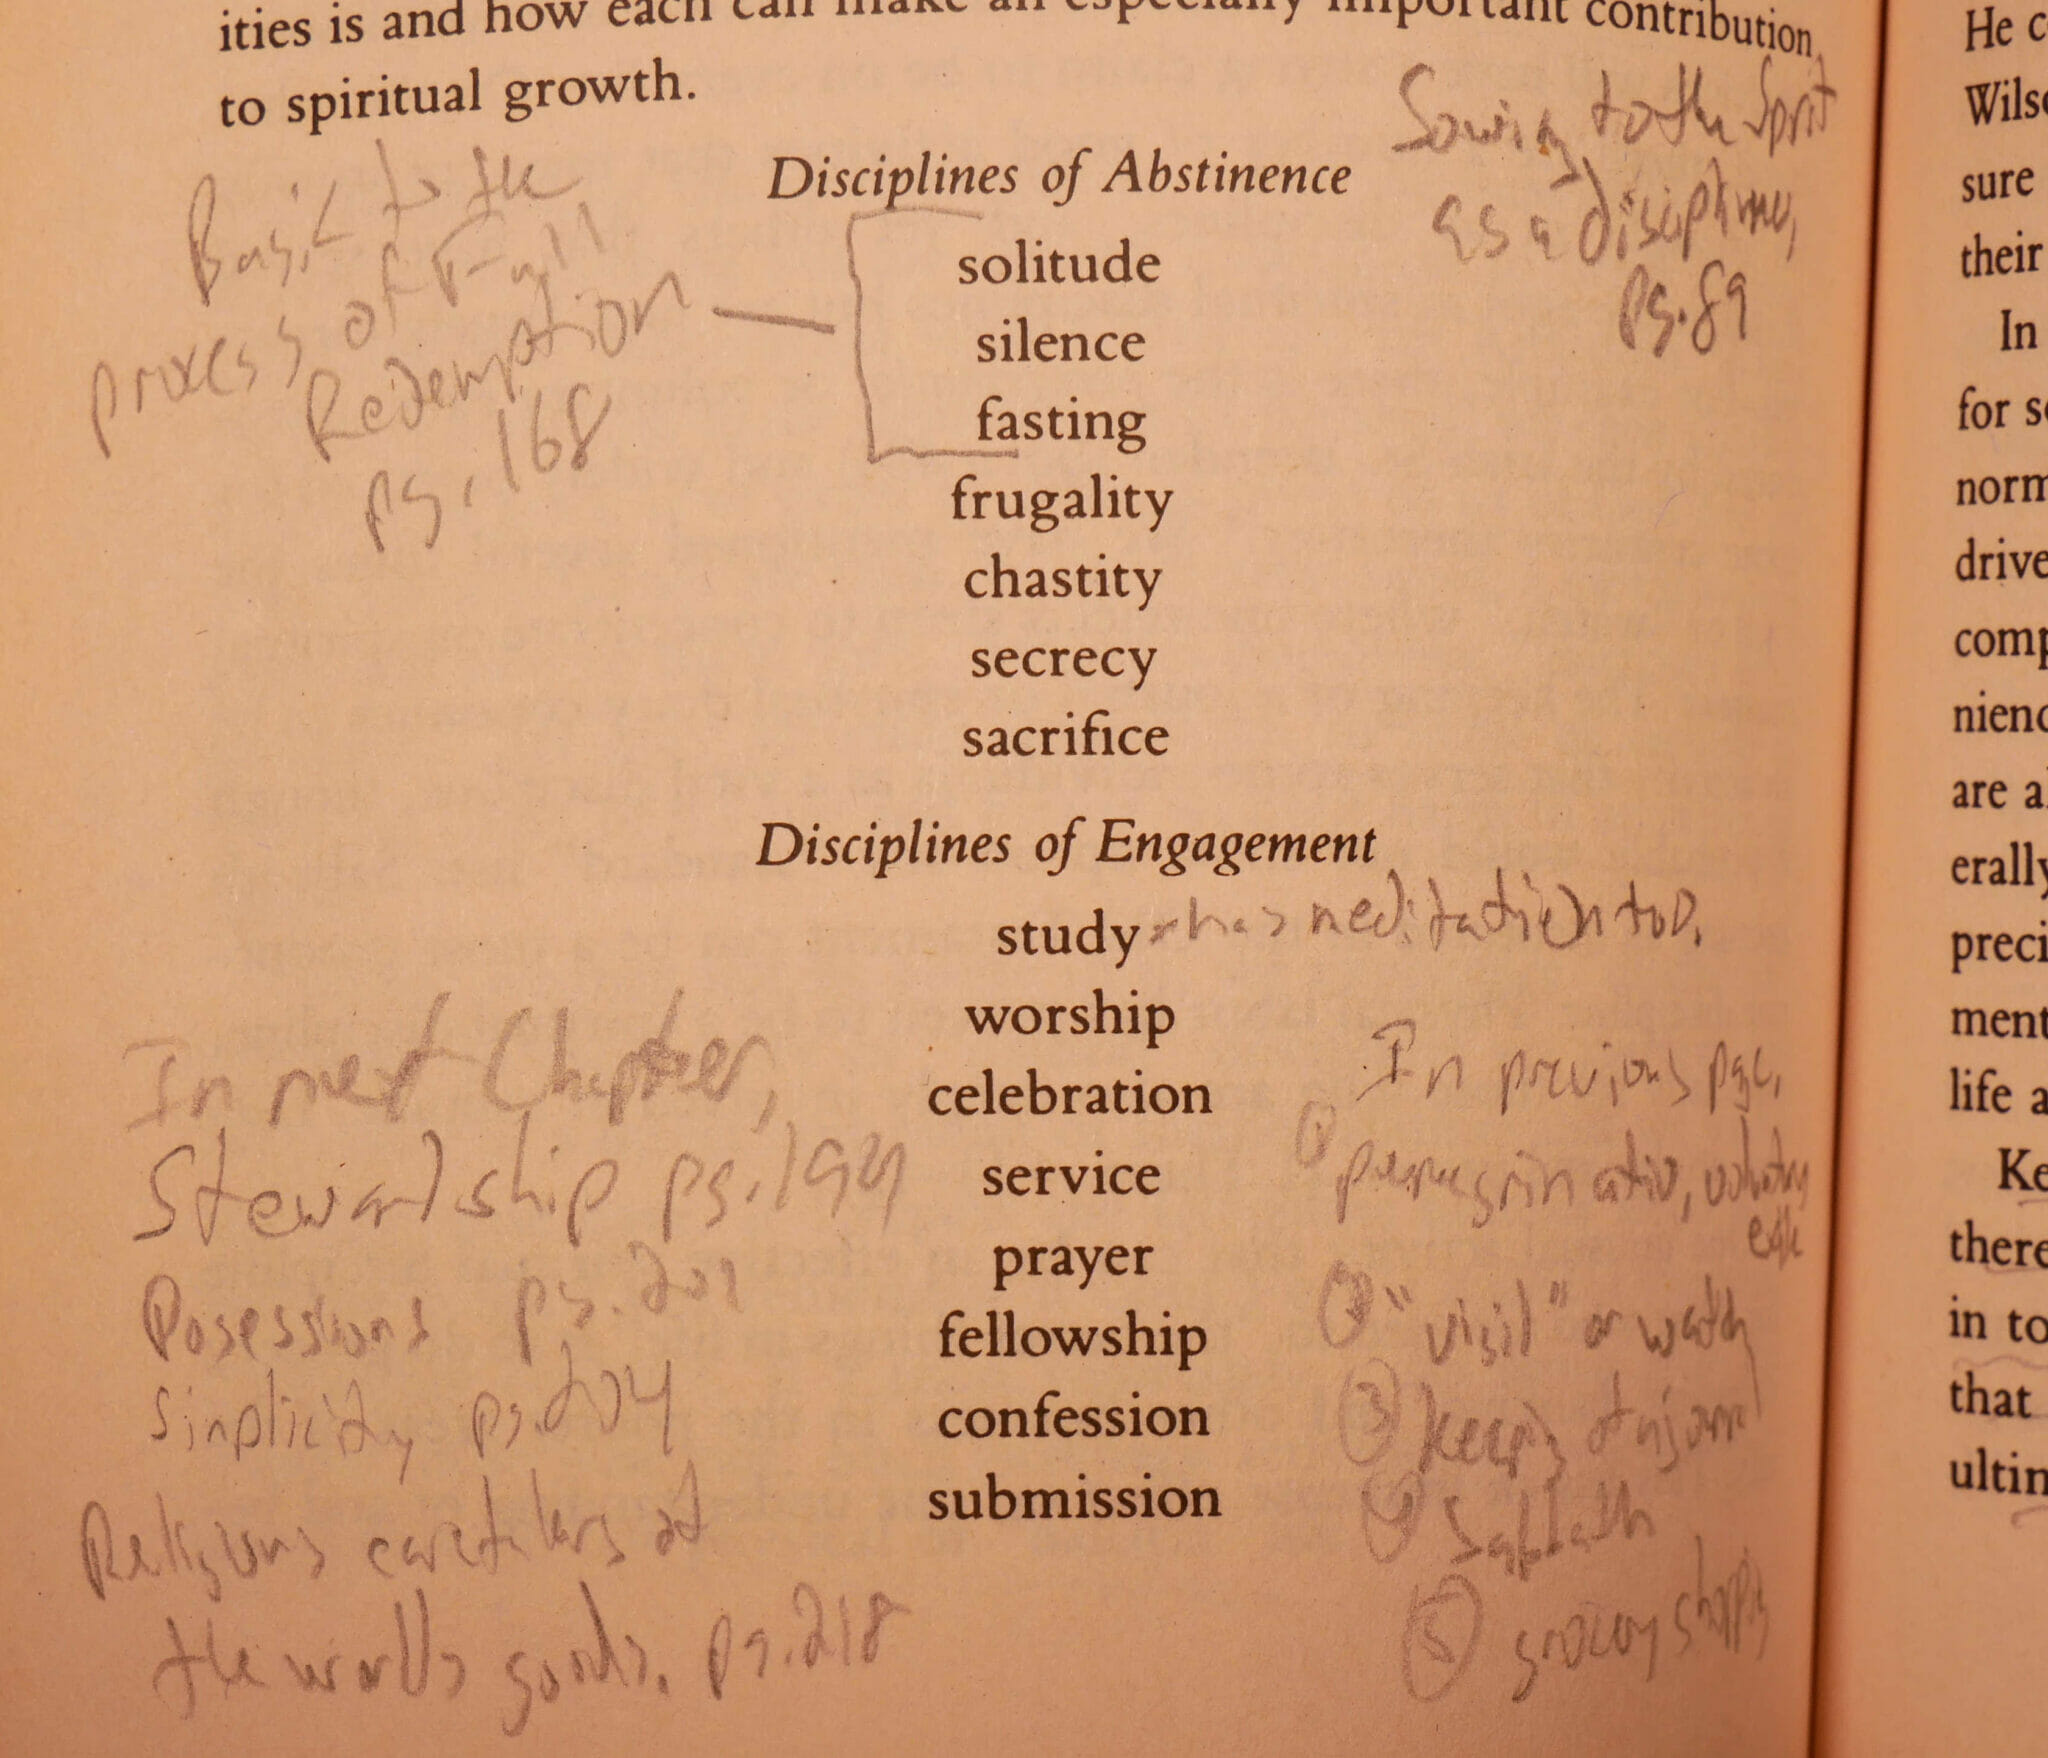 ities is and how each can make an especially important contribution
to spiritual growth.
Sowing to the Spirit
as a discipline,
pg. 89
Basic to the
process of Fall
Redemption
pg. 168
Disciplines of Abstinence
solitude
silence
fasting
frugality
chastity
secrecy
sacrifice
Disciplines of Engagement
study has meditation too.
worship
celebration
service
prayer
fellowship
confession
submission
In next Chapter,
Stewardship pg. 194
Posessions pg. 202
Simplicity pg. 204
Religious caretakers of
the worlds goods. pg. 218
In previous pgs.
① peregrinatio, voluntary
exile
② "vigil" or watch
③ keeping of a journal
④ Sabbath
⑤ grocery shopping
He c
Wils
sure
their
In
for s
norm
drive
comp
nienc
are a
erally
preci
ment
life a
Ke
there
in to
that
ultim